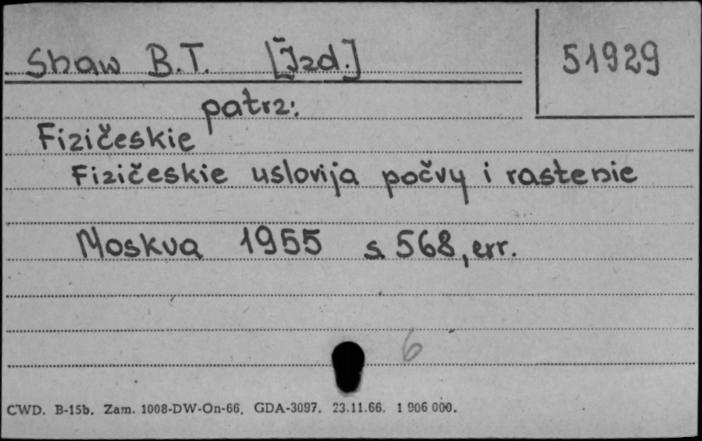 Shaw B.T. [Izd.] 51929
patrz:
Fizičeskie
Fizičeskie uslovija počvy i rastenie
Moskva 1955 s. 568, err.
6
CWD. B-15b. Zam. 1008-DW-On-66. GDA-3097. 23.11.66. 1 906 000.